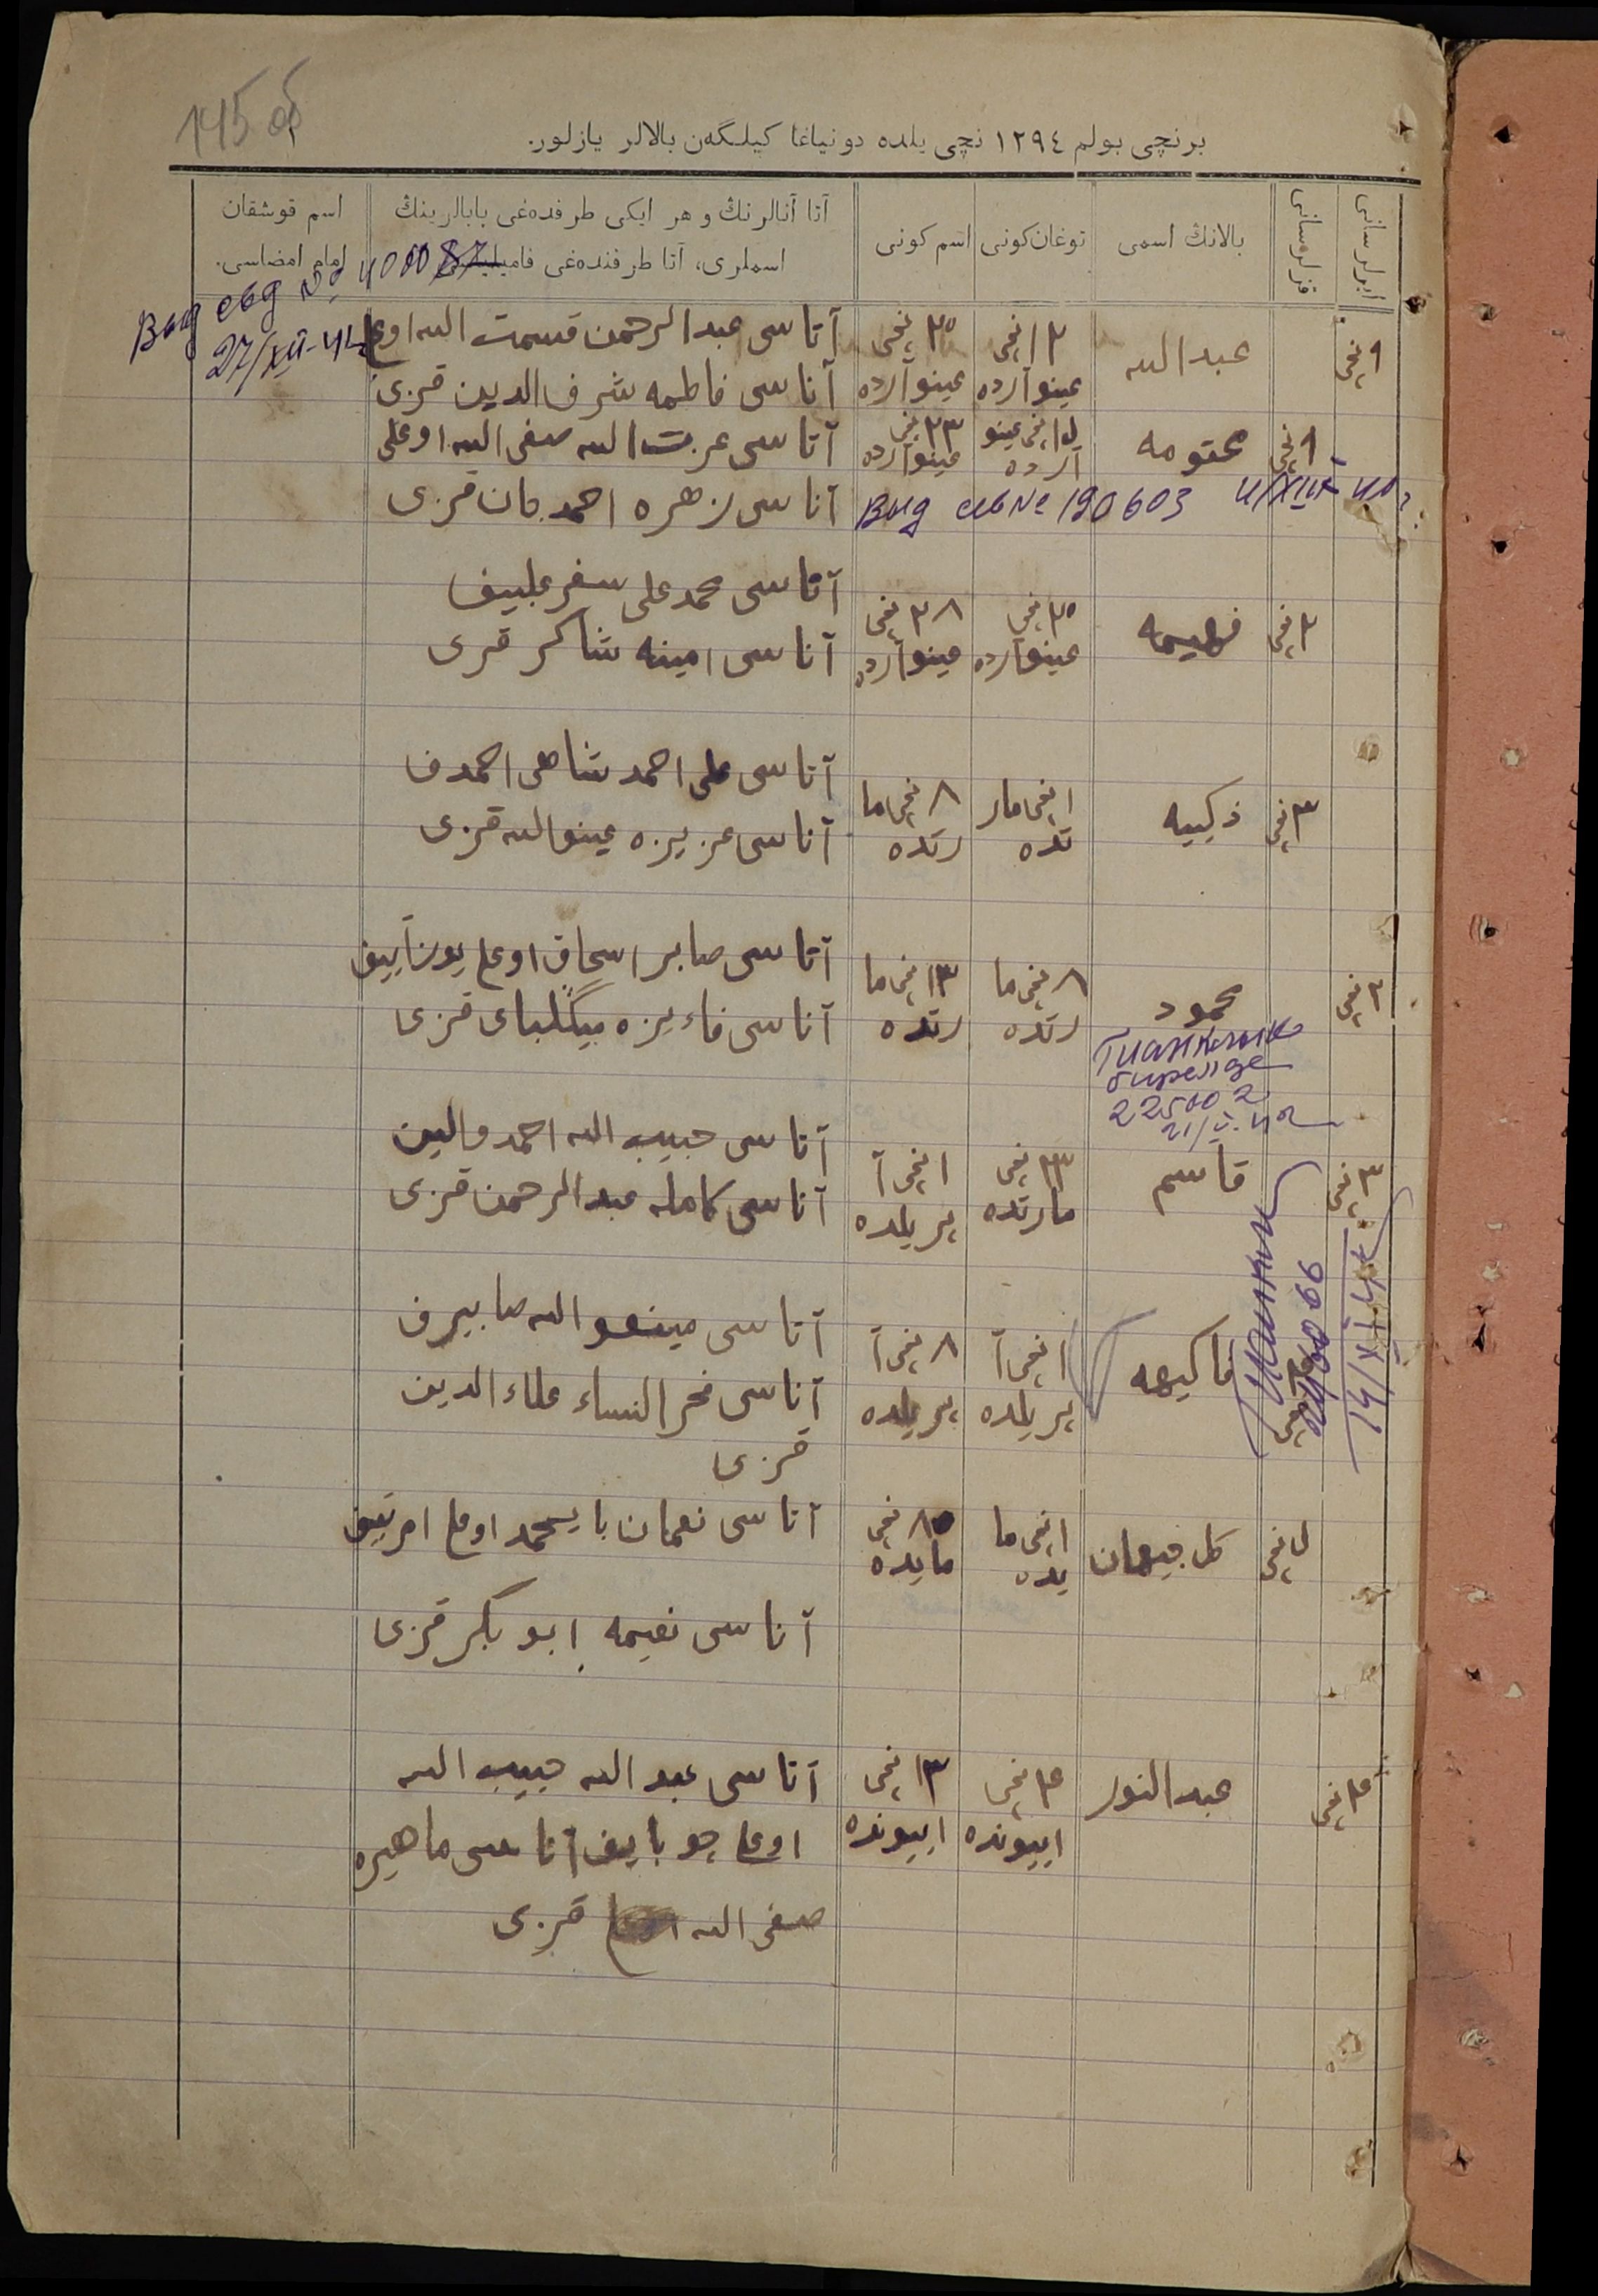 145 об
برنچی بولم ١٢٩٤ نچی یلده دونیاغا کیلگەن بالالر یازلور.
ایرلر سانی
قزلر سانی
بالانڭ اسمی
توغان کونی
اسم کونی
آتا آنالرنڭ و هر ایکی طرفدەغی بابالرینڭ
اسملری، آتا طرفندەغی
اسم قوشقان
امام امضاسی.
Выд свд № 400087
27/XII-41
١ نچی
عبدالله
١٢ نچی
عینوآرده
٢٥ نچی
عینوآرده
آتاسی عبدالرحمن قسمت الله اوغلی
آناسی فاطمه شرف الدین قزی
١ نچی
محتومه
١٥ نچی عینو
آرده
٢٣ نچی
عینوآرده
آتاسی عزت الله صفی الله اوغلی
آناسی زهره احمدجان قزی
Выд свд № 190603
٢ نچی
فهیمه
٢٥ نچی
عینوآرده
٢٨ نچی
عینوآرده
آتاسی محمد علی سفرعلییف
آناسی امینه شاکر قزی
٣ نچی
ذکییه
١ نچی مار
تده
٨ نچی ما
رتده
آتاسی علی احمد شاهی احمدف
آناسی عزیزه عینوالله قزی
٢ نچی
محمود
٨ نچی ما
رتده
١٣ نچی ما
رتده
آتاسی صابر اسحاق اوغلی
آناسی فاءیزه بیگلبای قزی
бирелде
225002
21/V-42
٣ نچی
قاسم
٢٣ نچی
مارتده
١ نچی آ
پریلده
آتاسی حبیب الله احمدوالین
آناسی کامله عبدالرحمن قزی
فاکیهه
١ نچی آ
پریلده
٨ نچی آ
پریلده
آتاسی مینعوالله صابیرف
آناسی فخرالنساء علاءالدین
قزی
٥ نچی
کل جیهان
١ نچی ما
یده
٨ نچی
مایده
آتاسی نعمان بایمحمد اوغلی
آناسی نعیمه ابوبکر قزی
٤ نچی
عبدالنور
٤ نچی
اییونده
١٣ نچی
اییونده
آتاسی عبدالله حبیب الله
اوغلی چوبایف آناسی ماهیره
صفی الله قزی